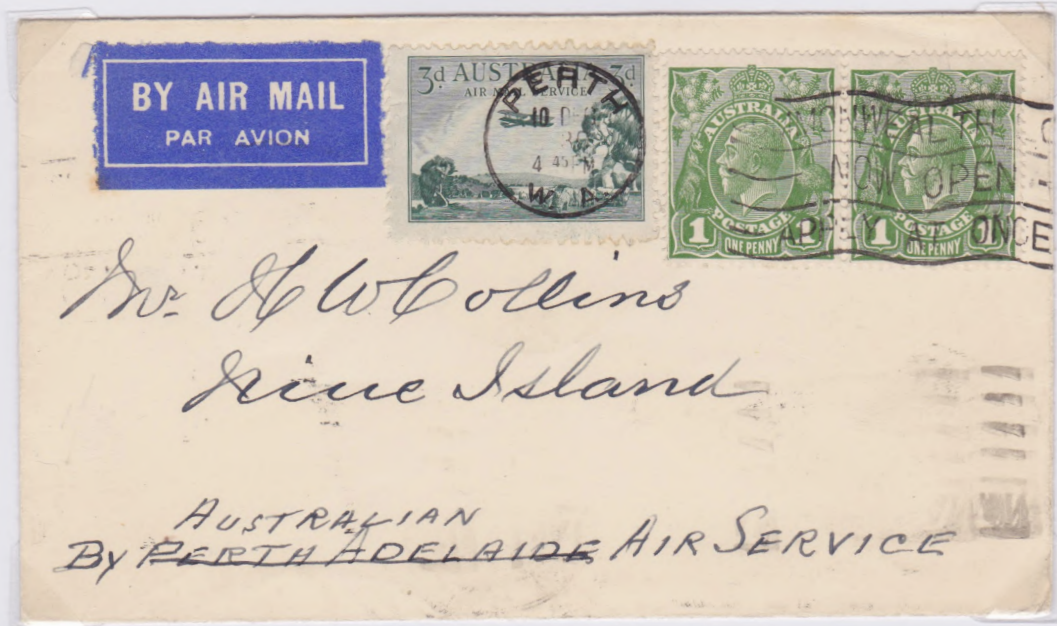 BY AIR MAIL
PAR AVION
3d AUSTRALIA 3d
AIR MAIL SERVICE
PERTH
10 D
4 45 PM
W. A
AUSTRALIA
POSTAGE
1
ONE PENNY
AUSTRALIA
POSTAGE
1
ONE PENNY
NOW OPEN
APPLY AT ONCE
Mr. H W Collins
Niue Island
AUSTRALIAN
BY PERTH ADELAIDE AIR SERVICE